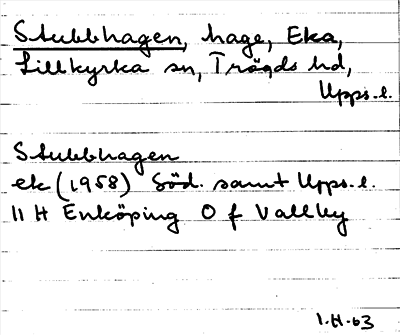 Stubbhagen, hage, Eka,
Lillkyrka sn, Trögds hd,
Upps. l.
Stubbhagen
ek (1958) Söd. samt Upps. l.
11 H Enköping O f Vallby
1.H.63